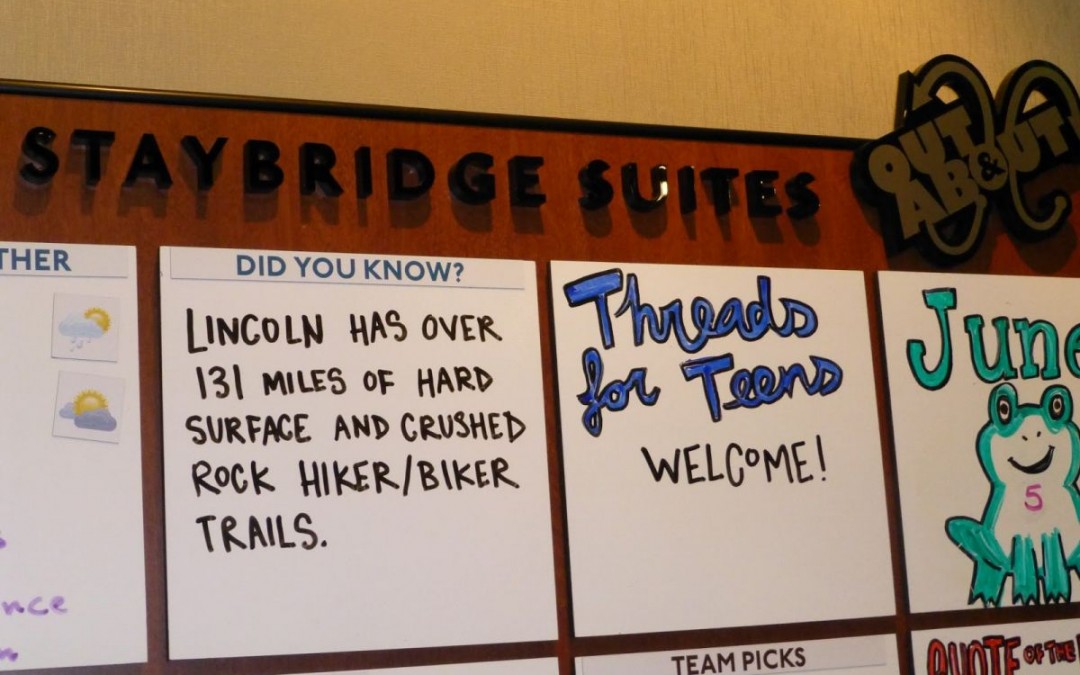 STAYBRIDGE SUITES
OUT
&
ABOUT
THER
DID YOU KNOW?
LINCOLN HAS OVER
131 MILES OF HARD
SURFACE AND CRUSHED
ROCK HIKER/BIKER
TRAILS.
Threads
for Teens
WELCOME!
June
5
TEAM PICKS
QUOTE OF THE
nce